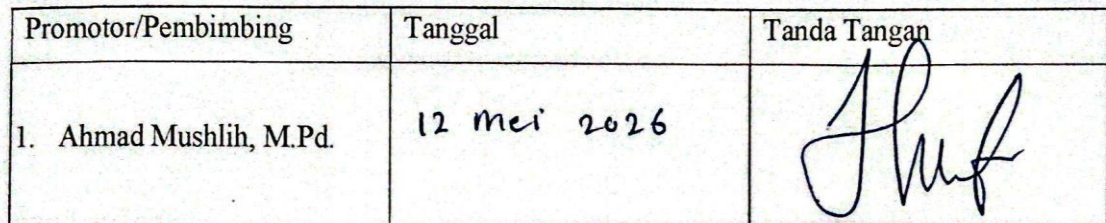 Promotor/Pembimbing Tanggal Tanda Tangan
1. Ahmad Mushlih, M.Pd. 12 Mei 2026